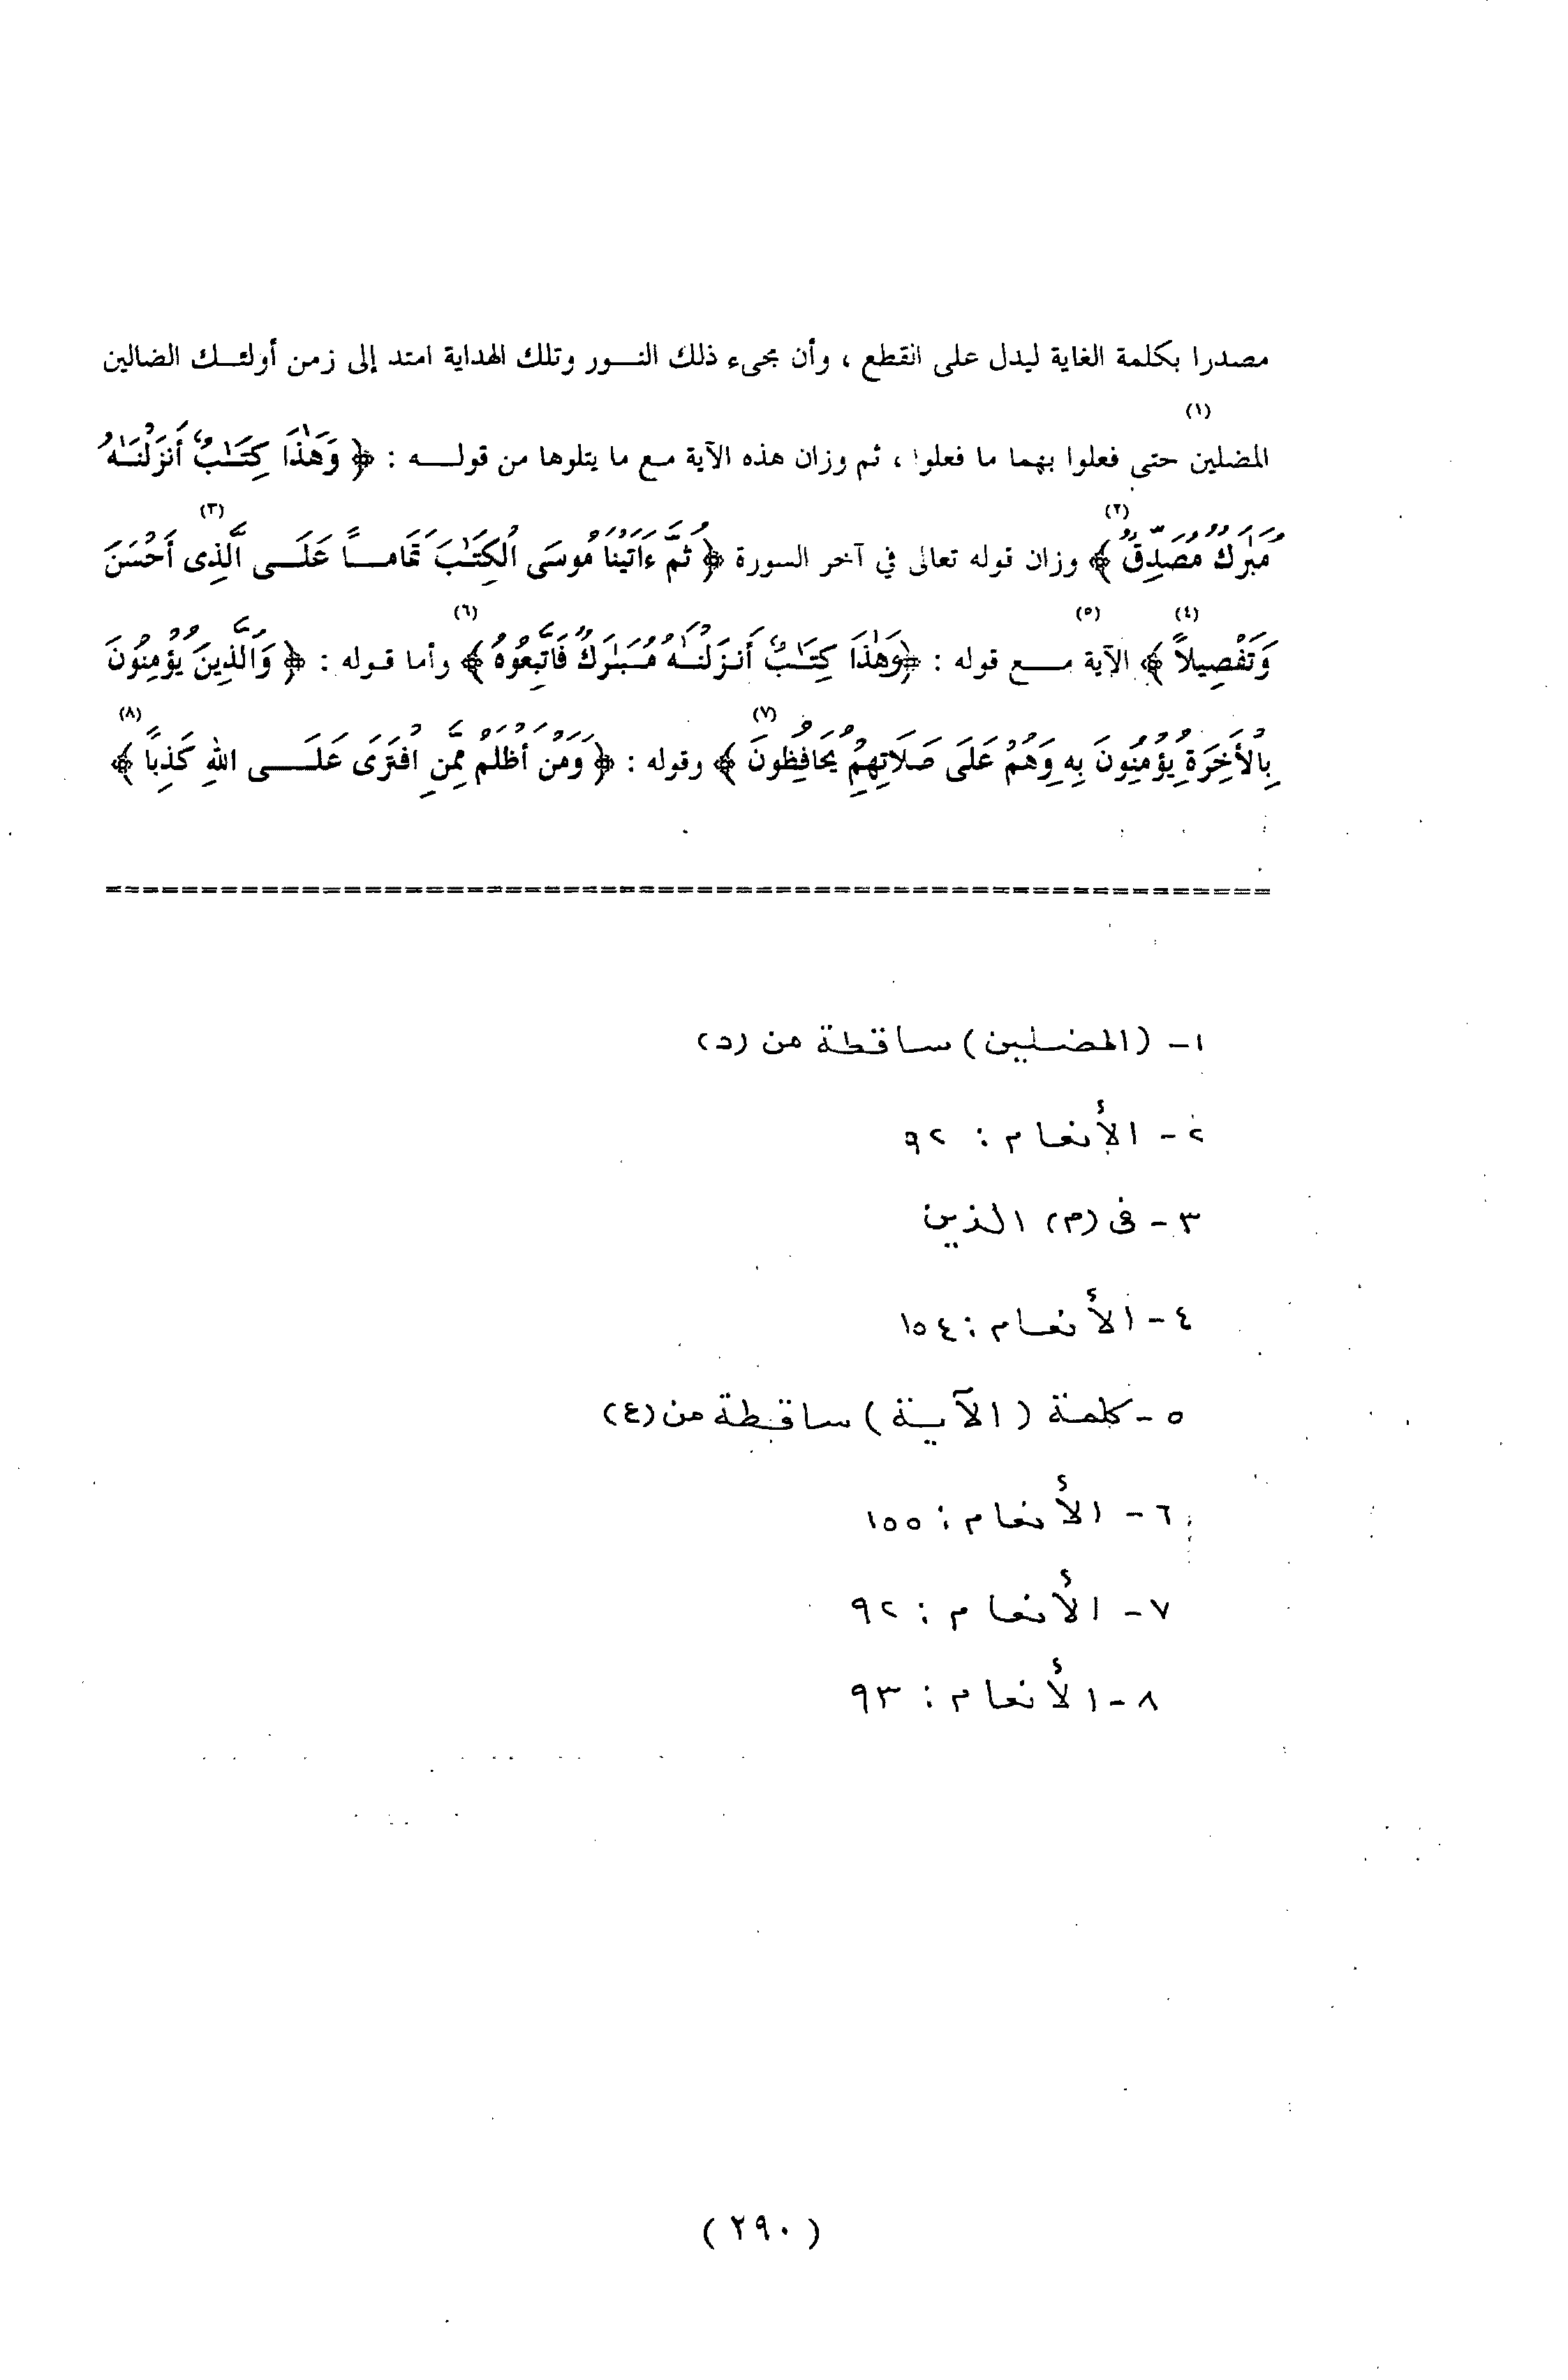 مصدرا بكلمة الغاية ليدل على انقطع ، وأن مجىء ذلك النـــور وتلك الهداية امتد إلى زمن أولئـــك الضالين
المضلين (١) حتى فعلوا بهما ما فعلوا ، ثم وزان هذه الآية مع ما يتلوها من قولـــه : ﴿ وَهَٰذَا كِتَٰبٌ أَنزَلْنَٰهُ
مُبَارَكٌ مُّصَدِّقُ ﴾ (٢) وزان قوله تعالى في آخر السورة ﴿ ثُمَّ ءَاتَيْنَا مُوسَى الْكِتَٰبَ تَمَامـــاً عَلَـــى الَّذِى (٣) أَحْسَنَ
وَتَفْصِيلاً ﴾ (٤) الآية (٥) مـــع قوله : ﴿وَهَٰذَا كِتَٰبٌ أَنزَلْنَٰهُ مُبَٰرَكٌ فَاتَّبِعُوهُ ﴾ (٦) وأما قوله : ﴿ وَالَّذِينَ يُؤْمِنُونَ
بِالأَخِرَةِ يُؤْمِنُونَ بِهِ وَهُمْ عَلَى صَلَاتِهِمْ يُحَافِظُونَ ﴾ (٧) وقوله : ﴿ وَمَنْ أَظْلَمُ مِمَّنِ افْتَرَى عَلَـــى اللهِ كَذِباً ﴾ (٨)
١- (المضلين) ساقطة من (د)
٢- الأنعام : ٩٢
٣- فى (م) الذين
٤- الأنعام : ١٥٤
٥- كلمة (الآية) ساقطة من (ع)
٦- الأنعام : ١٥٥
٧- الأنعام : ٩٢
٨- الأنعام : ٩٣
( ٢٩٠ )